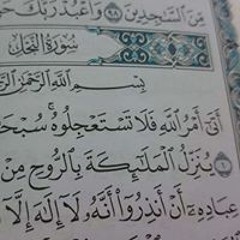 مِنَ ٱلسَّـٰجِدِينَ ٩٨ وَٱعْبُدْ رَبَّكَ
سُورَةُ النَّحْلِ
بِسْمِ ٱللَّهِ ٱلرَّحْمَـٰنِ
أَتَىٰٓ أَمْرُ ٱللَّهِ فَلَا تَسْتَعْجِلُوهُ ۚ
يُنَزِّلُ ٱلْمَلَـٰٓئِكَةَ بِٱلرُّوحِ مِنْ
عِبَادِهِۦٓ أَنْ أَنذِرُوٓا۟ أَنَّهُۥ لَآ إِلَـٰهَ إِلَّآ